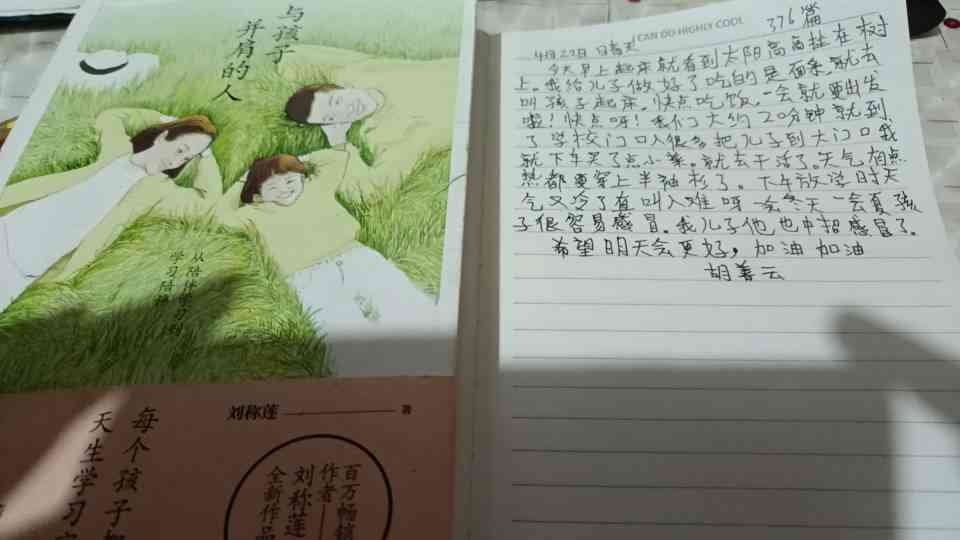 与孩子
并肩的
人
从陪伴学习到
学习陪伴
刘称莲 著
每个孩子
天生学习
百万畅销
作者
刘称莲
全新作品
CAN DO HIGHLY COOL
376篇
4月22日 日 天
今天早上起来就看到太阳高高挂在树
上。我给儿子做好了吃的是面条,就去
叫孩子起床,快点吃饭,一会就要出发
啦!快点呀!我们大约20分钟就到
了学校门口人很多把儿子到大门口我
就下车买了点小菜。就去干活了。天气有点
热都要穿上半袖衫了。下午放学时天
气又冷了真叫人难呀一会冬天一会夏孩
子很容易感冒。我儿子他,也中招感冒了。
希望明天会更好,加油加油
胡善云